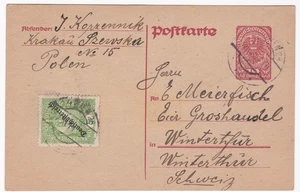 Absender: J. Korrennik
Krakau Szewska
№ 15
Polen
Postkarte
Herrn
E Meierfisch
Eier Groshandel
Winterthur
Winterthur
Schweiz